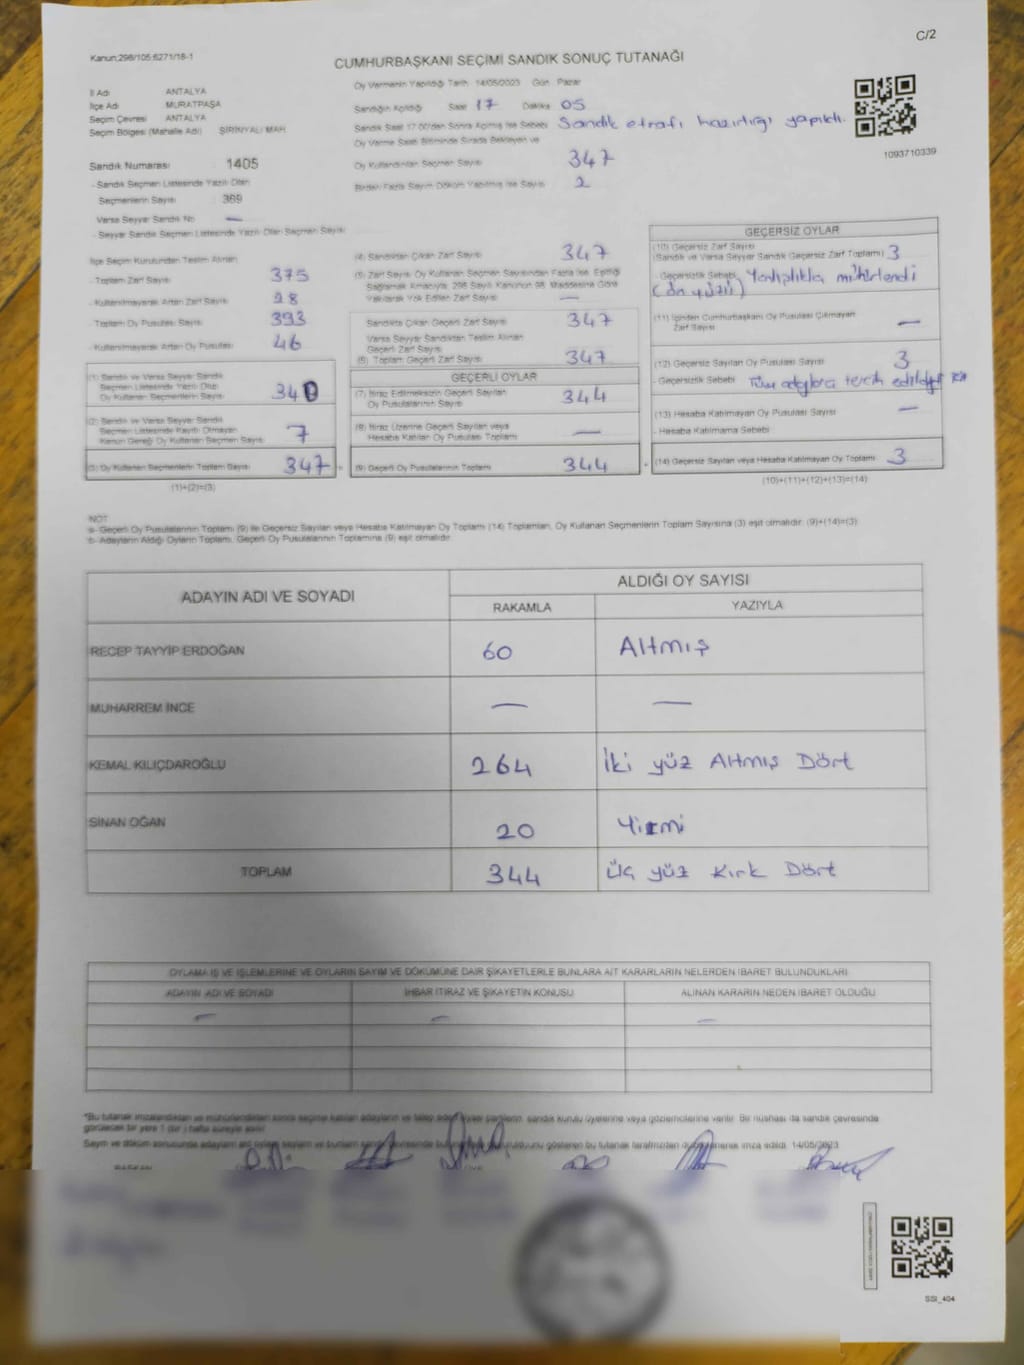 C/2
Kanun:298/105:6271/18-1
CUMHURBAŞKANI SEÇİMİ SANDIK SONUÇ TUTANAĞI
İl Adı ANTALYA
İlçe Adı MURATPAŞA
Seçim Çevresi ANTALYA
Seçim Bölgesi (Mahalle Adı) ŞİRİNYALI MAH
Sandık Numarası 1405
- Sandık Seçmen Listesinde Yazılı Olan
Seçmenlerin Sayısı 369
Varsa Seyyar Sandık No —
- Seyyar Sandık Seçmen Listesinde Yazılı Olan Seçmen Sayısı
Oy Vermenin Yapıldığı Tarih 14/05/2023 Gün Pazar
Sandığın Açıldığı Saat 17 Dakika 05
Sandık Saat 17.00'dan Sonra Açılmış İse Sebebi Sandık etrafı hazırlığı yapıldı.
Oy Verme Saati Bitiminde Sırada Bekleyen ve
Oy Kullandırılan Seçmen Sayısı 347
Birden Fazla Sayım Döküm Yapılmış İse Sayısı 2
1093710339
İlçe Seçim Kurulundan Teslim Alınan
- Toplam Zarf Sayısı 375
- Kullanılmayarak Artan Zarf Sayısı 28
- Toplam Oy Pusulası Sayısı 393
- Kullanılmayarak Artan Oy Pusulası 46
(1) Sandık ve Varsa Seyyar Sandık
Seçmen Listesinde Yazılı Olup
Oy Kullanan Seçmenlerin Sayısı 340
(2) Sandık ve Varsa Seyyar Sandık
Seçmen Listesinde Kayıtlı Olmayan
Kanun Gereği Oy Kullanan Seçmen Sayısı 7
(3) Oy Kullanan Seçmenlerin Toplam Sayısı 347
(1)+(2)=(3)
(4) Sandıktan Çıkan Zarf Sayısı 347
(5) Zarf Sayısı Oy Kullanan Seçmen Sayısından Fazla İse, Eşitliği
Sağlamak Amacıyla 298 Sayılı Kanunun 98. Maddesine Göre
Yakılarak Yok Edilen Zarf Sayısı —
Sandıkta Çıkan Geçerli Zarf Sayısı 347
Varsa Seyyar Sandıktan Teslim Alınan
Geçerli Zarf Sayısı
(6) Toplam Geçerli Zarf Sayısı 347
GEÇERLİ OYLAR
(7) İtiraz Edilmeksizin Geçerli Sayılan
Oy Pusulalarının Sayısı 344
(8) İtiraz Üzerine Geçerli Sayılan veya
Hesaba Katılan Oy Pusulası Toplamı —
(9) Geçerli Oy Pusulalarının Toplamı 344
GEÇERSİZ OYLAR
(10) Geçersiz Zarf Sayısı
(Sandık ve Varsa Seyyar Sandık Geçersiz Zarf Toplamı) 3
- Geçersizlik Sebebi Yanlışlıkla mühürlendi
(ön yüzü)
(11) İçinden Cumhurbaşkanı Oy Pusulası Çıkmayan
Zarf Sayısı —
(12) Geçersiz Sayılan Oy Pusulası Sayısı 3
- Geçersizlik Sebebi Tüm adaylara tercih edildiği için
(13) Hesaba Katılmayan Oy Pusulası Sayısı —
- Hesaba Katılmama Sebebi
(14) Geçersiz Sayılan veya Hesaba Katılmayan Oy Toplamı 3
(10)+(11)+(12)+(13)=(14)
NOT:
a- Geçerli Oy Pusulalarının Toplamı (9) ile Geçersiz Sayılan veya Hesaba Katılmayan Oy Toplamı (14) Toplamları, Oy Kullanan Seçmenlerin Toplam Sayısına (3) eşit olmalıdır. (9)+(14)=(3)
b- Adayların Aldığı Oyların Toplamı, Geçerli Oy Pusulalarının Toplamına (9) eşit olmalıdır.
ADAYIN ADI VE SOYADI ALDIĞI OY SAYISI
RAKAMLA YAZIYLA
RECEP TAYYİP ERDOĞAN 60 Altmış
MUHARREM İNCE — —
KEMAL KILIÇDAROĞLU 264 İki yüz Altmış Dört
SİNAN OĞAN 20 Yirmi
TOPLAM 344 Üç yüz Kırk Dört
OYLAMA İŞ VE İŞLEMLERİNE VE OYLARIN SAYIM VE DÖKÜMÜNE DAİR ŞİKAYETLERLE BUNLARA AİT KARARLARIN NELERDEN İBARET BULUNDUKLARI
ADAYIN ADI VE SOYADI İHBAR İTİRAZ VE ŞİKAYETİN KONUSU ALINAN KARARIN NEDEN İBARET OLDUĞU
— — —
*Bu tutanak imzalandıktan ve mühürlendikten sonra seçime katılan adayların ve talep eden siyasi partilerin sandık kurulu üyelerine veya gözlemcilerine verilir. Bir nüshası da sandık çevresinde
görülecek bir yere 1 (bir) hafta süreyle asılır.
Sayım ve döküm sonucunda adayların
gösteren bu tutanak tarafımızdan imza edildi. 14/05/2023
BAŞKAN
SSI_404